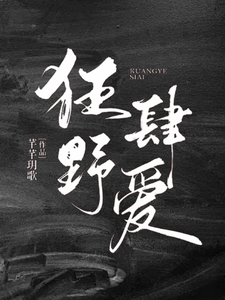 狂野
肆爱
KUANGYE
SIAI
芊芊玥歌
作品